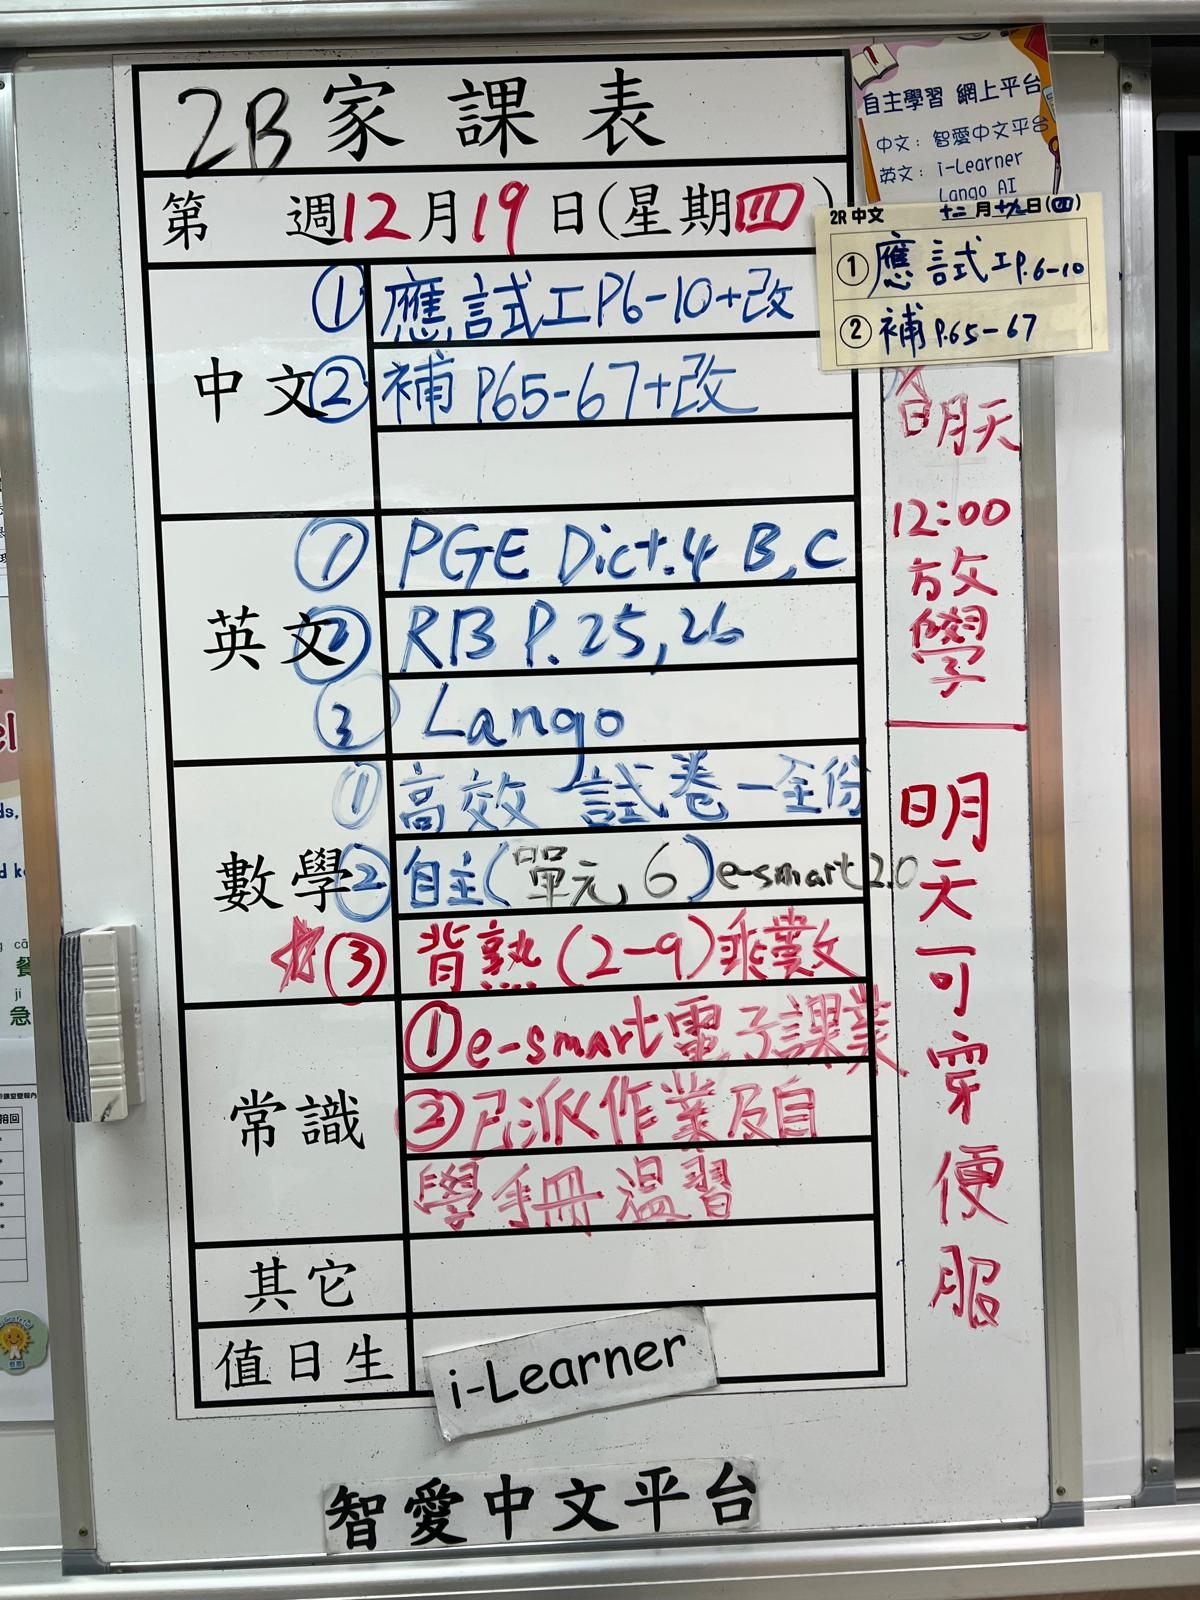 2B家課表
第 週12月19日(星期四)
中文
①應試工P6-10+改
②補P65-67+改
英文
①PGE Dict.4 B,C
②RB P.25,26
③Lango
數學
①高效 試卷一全份
②自主(單元6)e-smart2.0
③背熟(2-9)乘數
常識
①e-smart電子課業
②已派作業及自
學手冊溫習
其它
值日生
i-Learner
智愛中文平台
自主學習 網上平台
中文：智愛中文平台
英文：i-Learner
Lango AI
2R中文 十二月十九日(四)
①應試工P.6-10
②補P.65-67
明天
12:00
放學
明天可穿便服